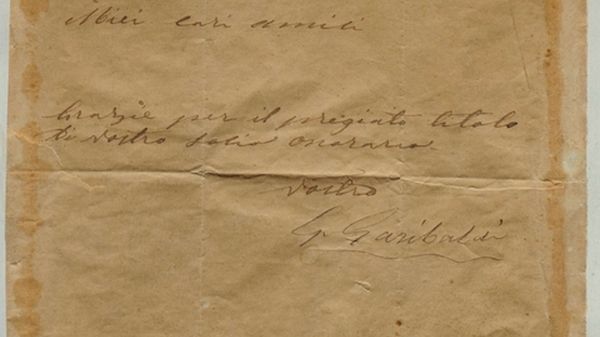 Miei cari amici
Grazie per il pregiato titolo
di vostro socio onorario.
Vostro
G. Garibaldi